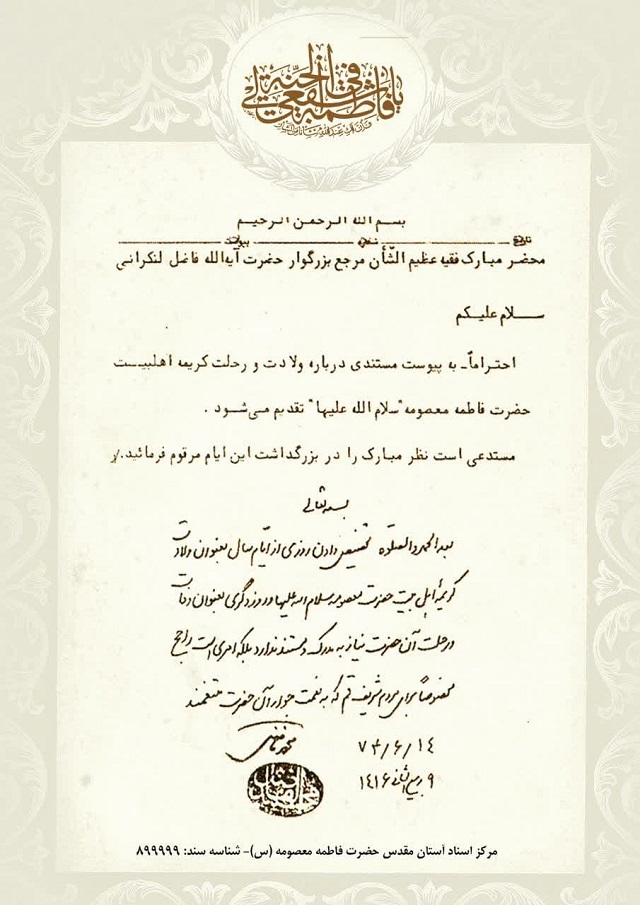 یا فاطمة اشفعی لی فی الجنة
بسم الله الرحمن الرحیم
تاریخ شماره پیوست
محضر مبارک فقیه عظیم الشّأن مرجع بزرگوار حضرت آیه‌الله فاضل لنکرانی
سلام علیکم
احتراماً- به پیوست مستندی درباره ولادت و رحلت کریمه اهلبیت
حضرت فاطمه معصومه "سلام الله علیها" تقدیم می‌شود .
مستدعی است نظر مبارک را در بزرگداشت این ایام مرقوم فرمائید./
بسمه تعالی
بعد الحمد والصلوة تخصیص دادن روزی از ایّام سال بعنوان ولادت
کریمهٔ اهل بیت حضرت معصومه سلام الله علیها و روز دگری بعنوان وفات
و رحلت آن حضرت نیاز به مدرک و مستند ندارد بلکه امری است راجح
مخصوصاً برای مردم شریف قم که به نعمت جوار آن حضرت متنعمند
۷۴/۶/۱۴
۹ ربیع الثانی ۱۴۱۶
مرکز اسناد آستان مقدس حضرت فاطمه معصومه (س)- شناسه سند: ۸۹۹۹۹۹